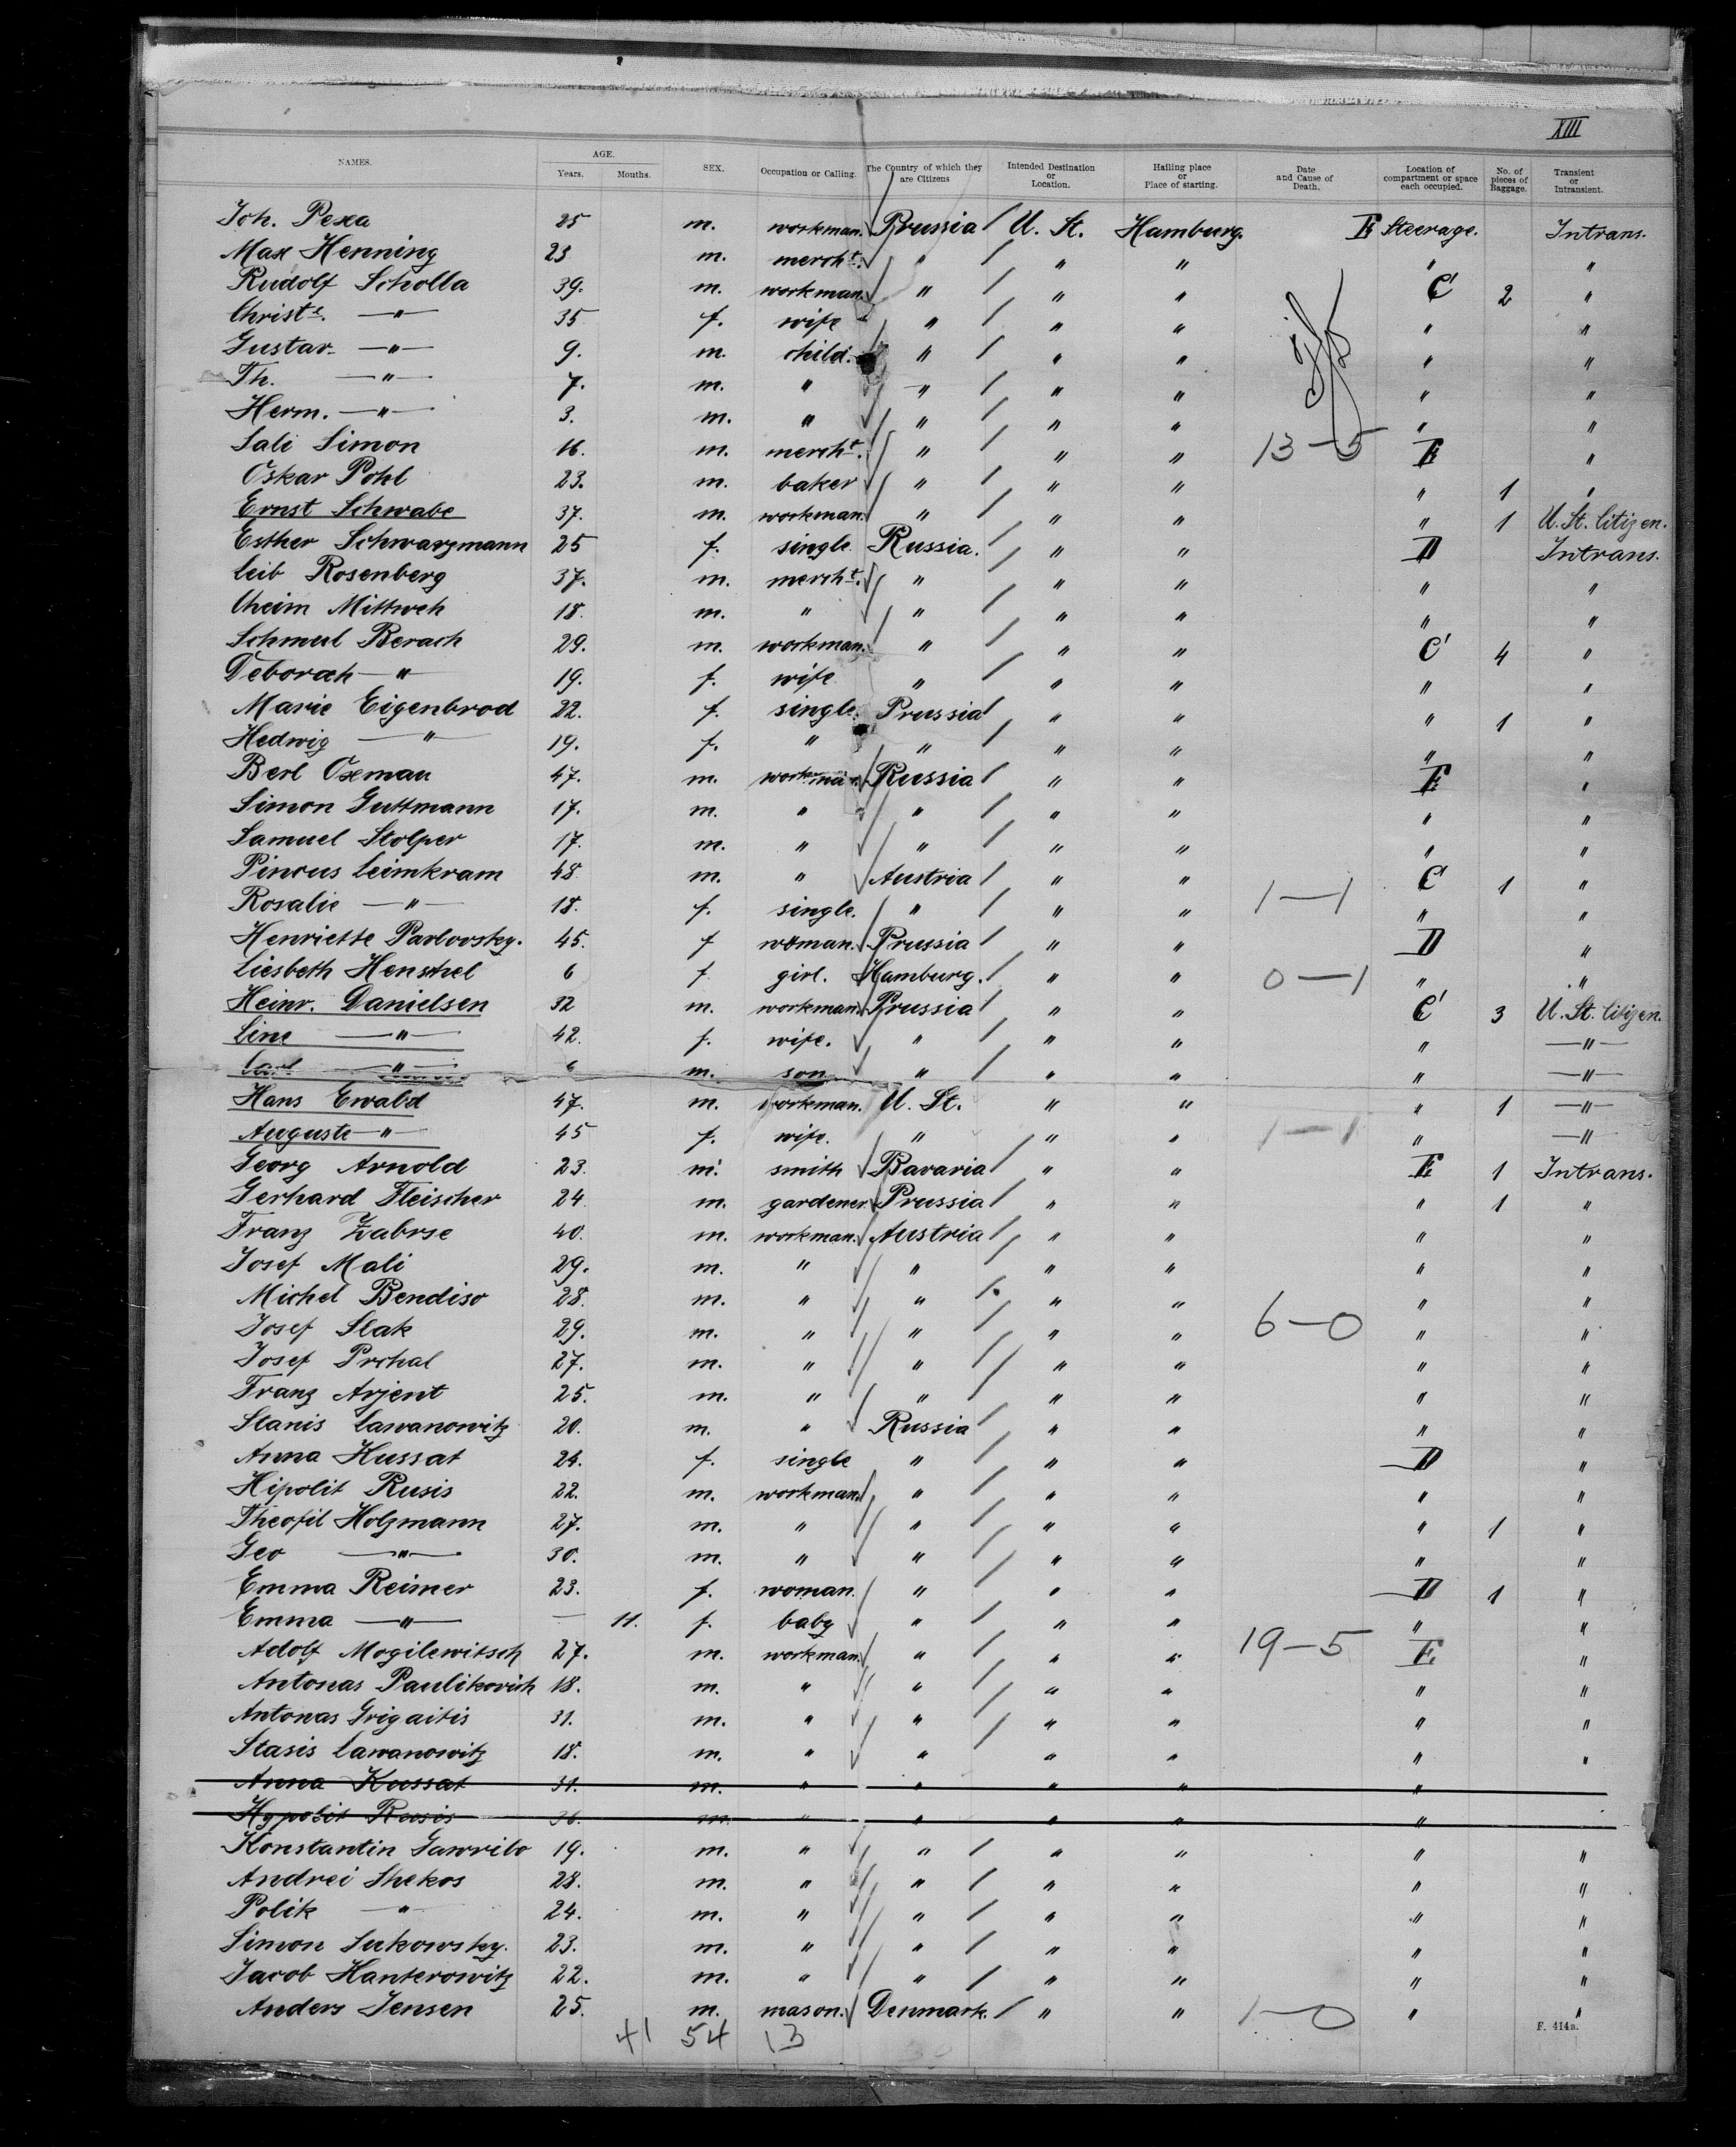 XIII
NAMES. AGE. Years. Months. SEX. Occupation or Calling. The Country of which they are Citizens Intended Destination or Location. Hailing place or Place of starting. Date and Cause of Death. Location of compartment or space each occupied. No. of pieces of Baggage. Transient or Intransient.
Joh. Pexa 25 m. workman. Prussia U. St. Hamburg. E Steerage. Intrans.
Max Henning 23 m. mercht. " " " " "
Rudolf Scholla 39. m. workman. " " " C 2 "
Christe. —"— 35 f. wife " " " " "
Gustav. —"— 9. m. child. " " " " "
Th. —"— 7. m. " " " " " "
Herm. —"— 3. m. " " " " " "
Sali Simon 16. m. mercht. " " " 13-5 E "
Oskar Pohl 23. m. baker " " " " 1 "
Ernst Schwabe 37. m. workman. " " " " 1 U. St. Citizen.
Esther Schwarzmann 25 f. single. Russia. " " D Intrans.
Leib Rosenberg 37. m. mercht. " " " " "
Cheim Mittweh 18. m. " " " " " "
Schmeul Berach 29. m. workman. " " " C 4 "
Deborah —"— 19. f. wife " " " " "
Marie Eigenbrod 22. f. single. Prussia " " " 1 "
Hedwig —"— 19. f. " " " " " "
Berl Oxeman 47. m. workman. Russia " " E "
Simon Guttmann 17. m. " " " " " "
Samuel Stolper 17. m. " " " " " "
Pincus Leimkram 48. m. " Austria " " C 1 "
Rosalie —"— 18. f. single. " " " 1-1 " "
Henriette Pavlovsky. 45. f woman. Prussia " " D "
Liesbeth Henschel 6 f girl. Hamburg. " " 0-1 " "
Heinr. Danielsen 32 m. workman. Prussia " " C 3 U. St. Citizen.
Line —"— 42. f. wife. " " " " —"—
Carl —"— 6 m. son " " " " —"—
Hans Ewald 47. m. workman. U. St. " " " 1 —"—
Auguste —"— 45 f. wife. " " " 1-1 " —"—
Georg Arnold 23. m. smith Bavaria " " E 1 Intrans.
Gerhard Fleischer 24 m. gardener. Prussia " " " 1 "
Franz Zabrse 40. m. workman. Austria " " " "
Josef Mali 29. m. " " " " " "
Michel Bendiso 28. m. " " " " " "
Josef Slak 29. m. " " " " 6-0 " "
Josef Prchal 27. m. " " " " " "
Franz Arjent 25. m. " " " " " "
Stanis Cawanowitz 20. m. " Russia " " " "
Anna Hussat 24. f. single " " " D "
Hipolit Rusis 22. m. workman. " " " " "
Theofil Holzmann 27. m. " " " " " 1 "
Geo —"— 30. m. " " " " " "
Emma Reimer 23. f. woman. " " " D 1 "
Emma —"— — 11. f. baby " " " " "
Adolf Mogilewitsch 27. m. workman. " " " 19-5 E "
Antonas Paulikovich 18. m. " " " " " "
Antonas Grigaitis 31. m. " " " " " "
Stasis Cawanowitz 18. m. " " " " " "
Anna Kussat 31. m. " " " " "
Hypolit Rusis 36. m. " " " " "
Konstantin Gawrilo 19. m. " " " " " "
Andrei Shekos 28. m. " " " " " "
Polik " 24. m. " " " " " "
Simon Sukowsky. 23. m. " " " " " "
Jacob Kanterowitz 22. m. " " " " " "
Anders Jensen 25. m. mason. Denmark. " " 1-0 " "
41 54 13
F. 414a.